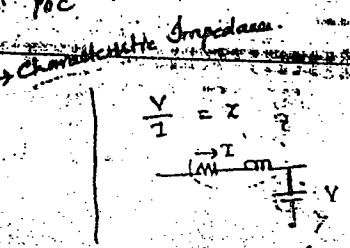 POC
→ Characteristic Impedance.
V/I = Z
→ I
V